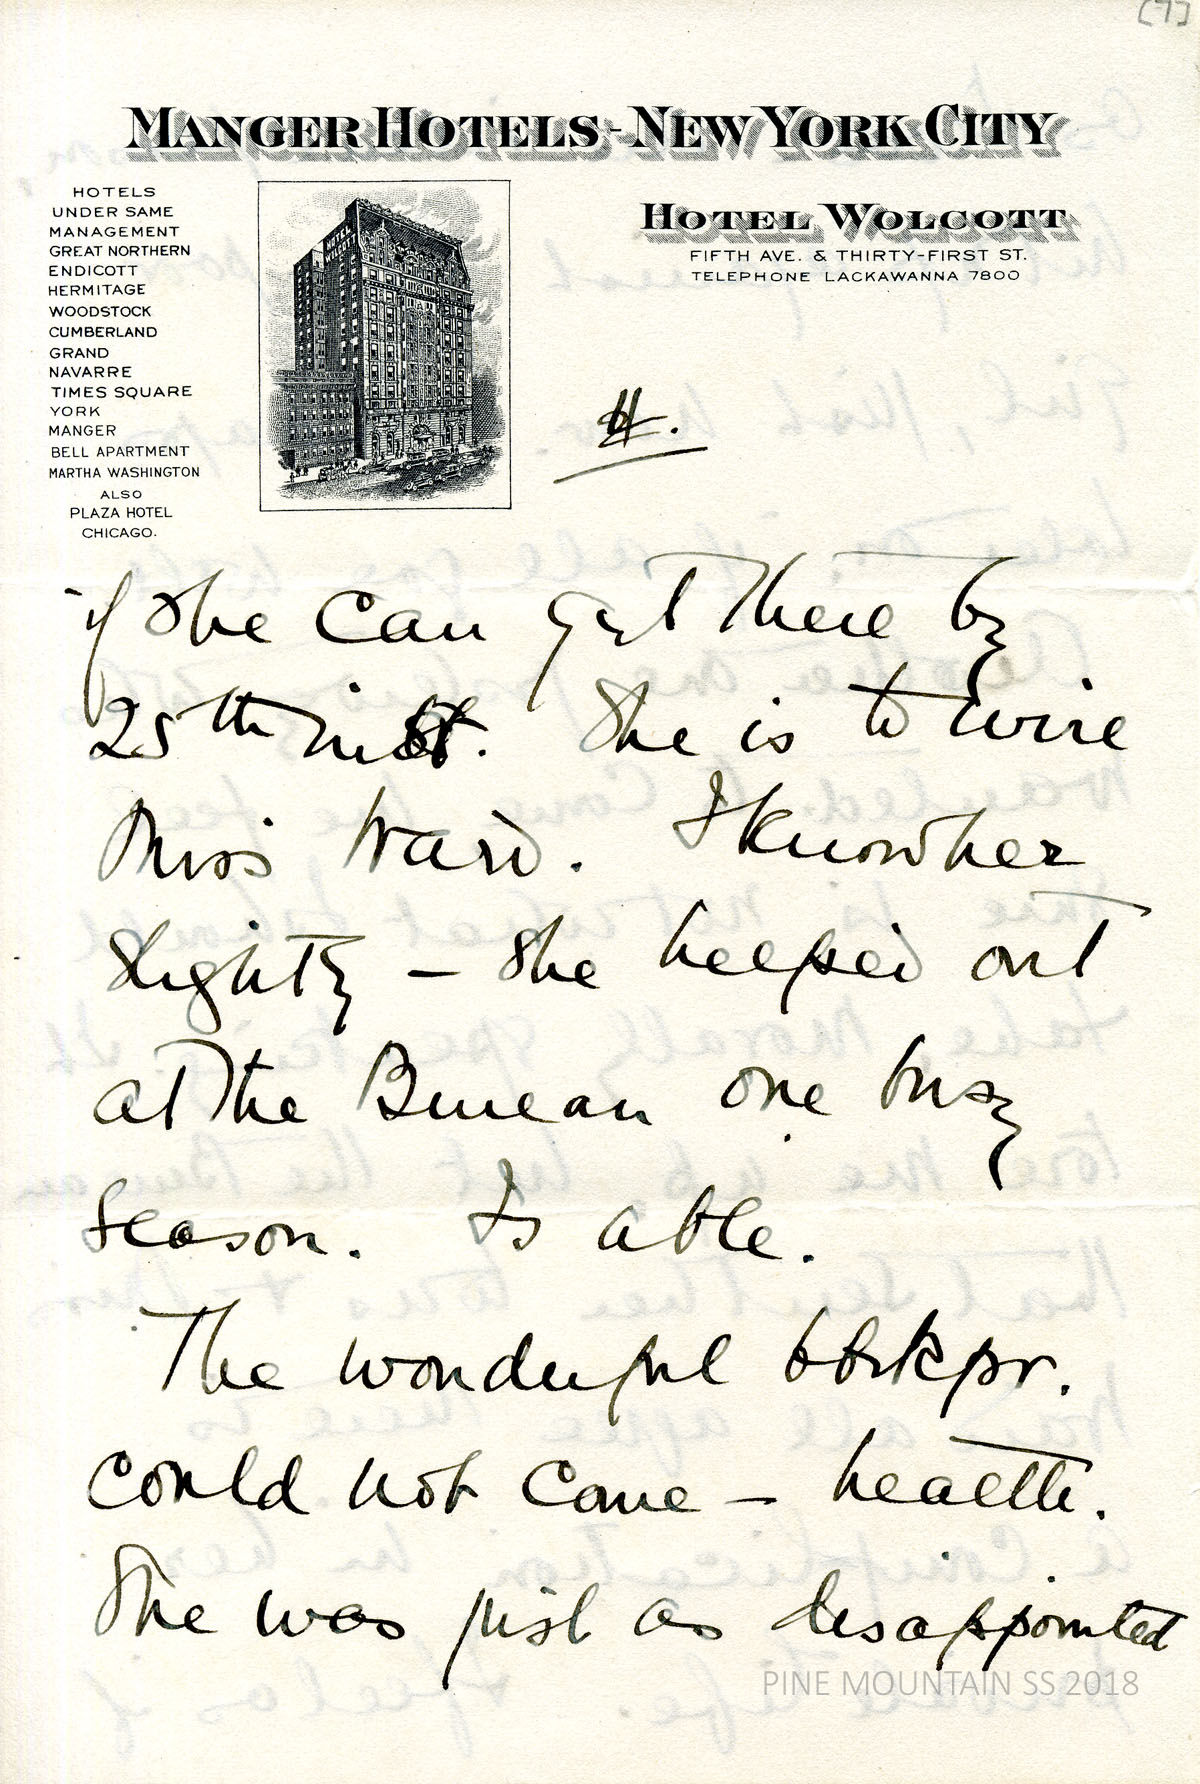 [7]
MANGER HOTELS - NEW YORK CITY
HOTELS
UNDER SAME
MANAGEMENT
GREAT NORTHERN
ENDICOTT
HERMITAGE
WOODSTOCK
CUMBERLAND
GRAND
NAVARRE
TIMES SQUARE
YORK
MANGER
BELL APARTMENT
MARTHA WASHINGTON
ALSO
PLAZA HOTEL
CHICAGO.
HOTEL WOLCOTT
HOTEL WOLCOTT
FIFTH AVE. & THIRTY-FIRST ST.
TELEPHONE LACKAWANNA 7800
if she can get there by
25th inst. She is to wire
Miss Ward. I know her
slightly – she helped out
at the Bureau one busy
season. Is able.
The wonderful bbkkpr.
could not come – health.
She was just as disappointed
PINE MOUNTAIN SS 2018